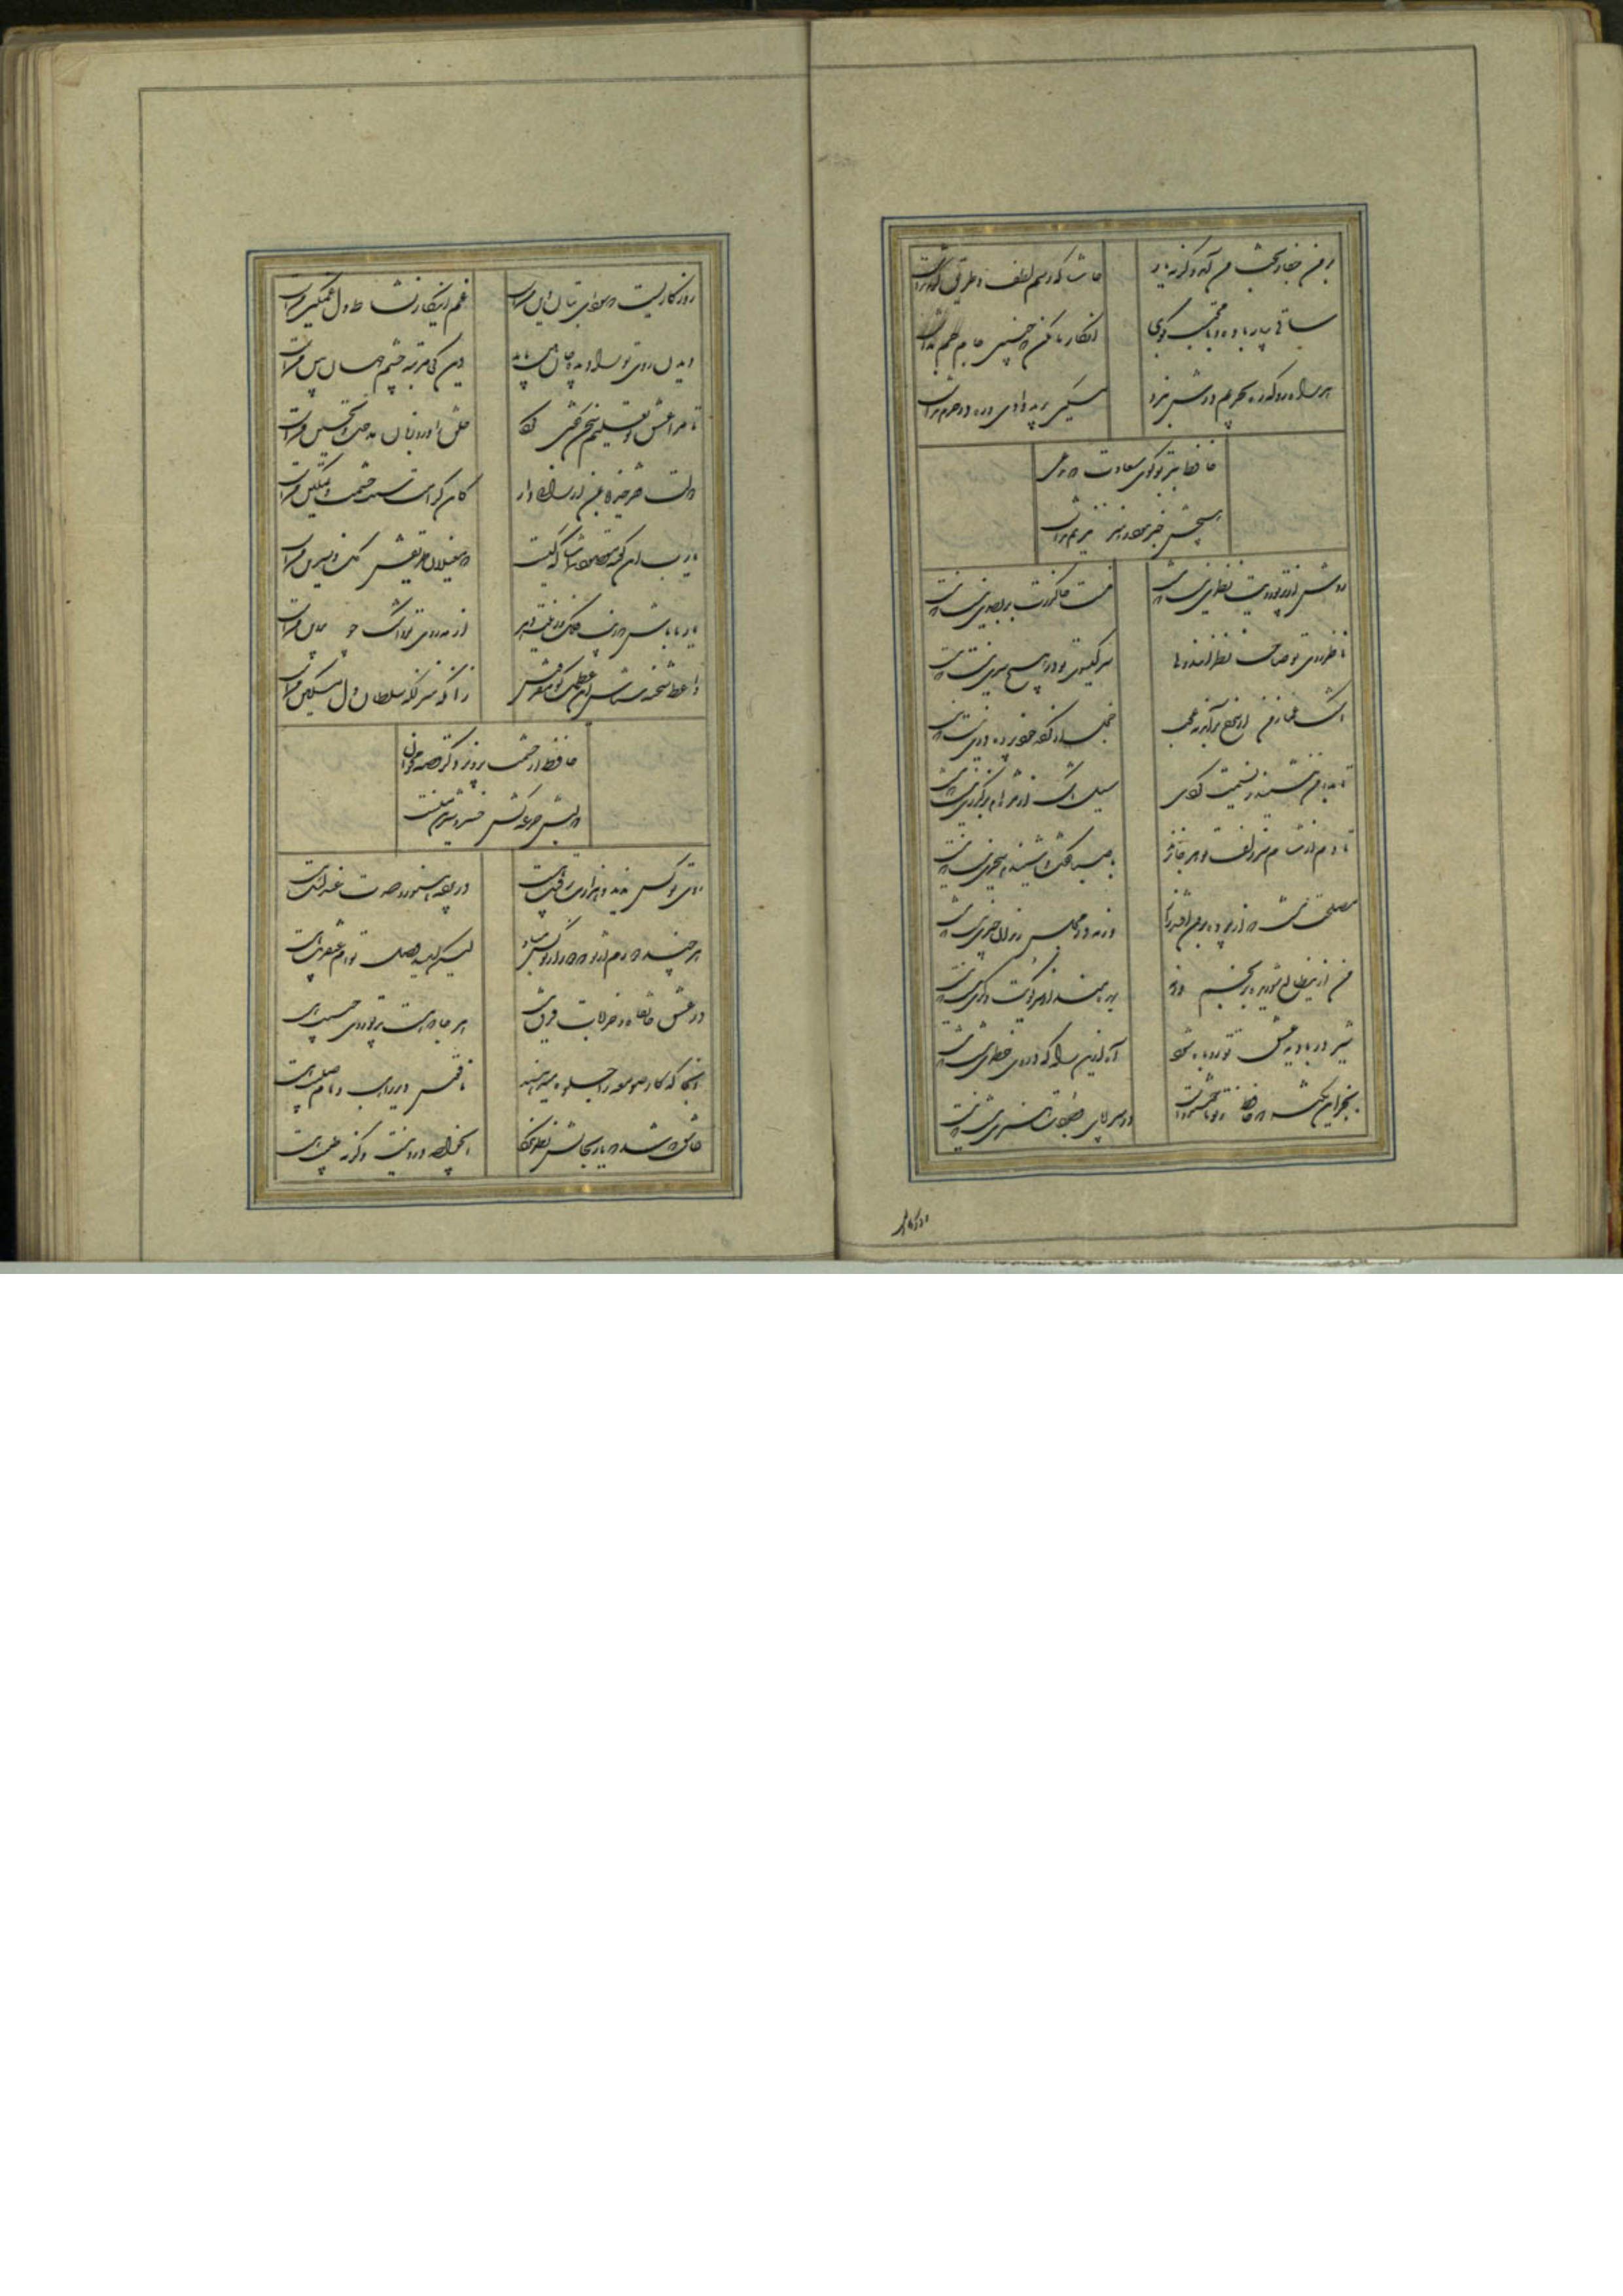 بر من جفا ز بخت من آمد وگرنه یار حاشا که رسم لطف و طریق کرم نداشت
ساقی بیار باده و با محتسب بگوی انکار ما مکن که چنین جام جم نداشت
هر راه رو که ره به حریم درش نبرد مسکین برید وادی و ره در حرم نداشت
حافظ ببر تو گوی سعادت که مدعی
هیچش خبر نبود و هنر نیز هم نداشت
روشن از پرتو رویت نظری نیست که نیست منت خاک درت بر بصری نیست که نیست
ناظر روی تو صاحب نظرانند ولی سر گیسوی تو در هیچ سری نیست که نیست
اشک غماز من ار سرخ برآید چه عجب خجل از کرده خود پرده دری نیست که نیست
تا بدامن ننشیند ز نسیمت گردی سیل اشک از نظرم بر گذری نیست که نیست
تا دم از شام سر زلف تو هر جا نزند با صبا گفت و شنیدم سحری نیست که نیست
مصلحت نیست که از پرده برون افتد راز ورنه در مجلس رندان خبری نیست که نیست
من ازین طالع شوریده برنجم ورنه بهره مند از سر کویت دگری نیست که نیست
شیر در بادیه عشق تو روباه شود آه ازین راه که در وی خطری نیست که نیست
بجز این نکته که حافظ ز تو ناخشنودست در سراپای وجودت هنری نیست که نیست
روزگار
روزگاریست که سودای بتان دین منست غم این کار نشاط دل غمگین منست
دیدن روی ترا دیده جان بین باید وین کی مرتبه چشم جهان بین منست
تا مرا عشق تو تعلیم سخن گفتن کرد خلق را ورد زبان مدحت و تحسین منست
دولت فقر خدایا بمن ارزانی دار کین کرامت سبب حشمت و تمکین منست
یارب این کعبه مقصود تماشاگه کیست که مغیلان طریقش گل و نسرین منست
یار ما باش که زیب فلک و زینت دهر از مه روی تو و اشک چو پروین منست
واعظ شحنه شناس این عظمت گو مفروش زانکه منزلگه سلطان دل مسکین منست
حافظ از حشمت پرویز دگر قصه مخوان
که لبش جرعه کش خسرو شیرین منست
روی تو کس ندید و هزارت رقیب هست در غنچه هنوز و صدت عندلیب هست
هر چند دورم از تو که دور از تو کس مباد لیکن امید وصل توام عنقریب هست
در عشق خانقاه و خرابات فرق نیست هر جا که هست پرتو روی حبیب هست
آنجا که کار صومعه را جلوه میدهند ناقوس دیر راهب و نام صلیب هست
عاشق که شد که یار بحالش نظر نکرد ای خواجه درد نیست وگرنه طبیب هست